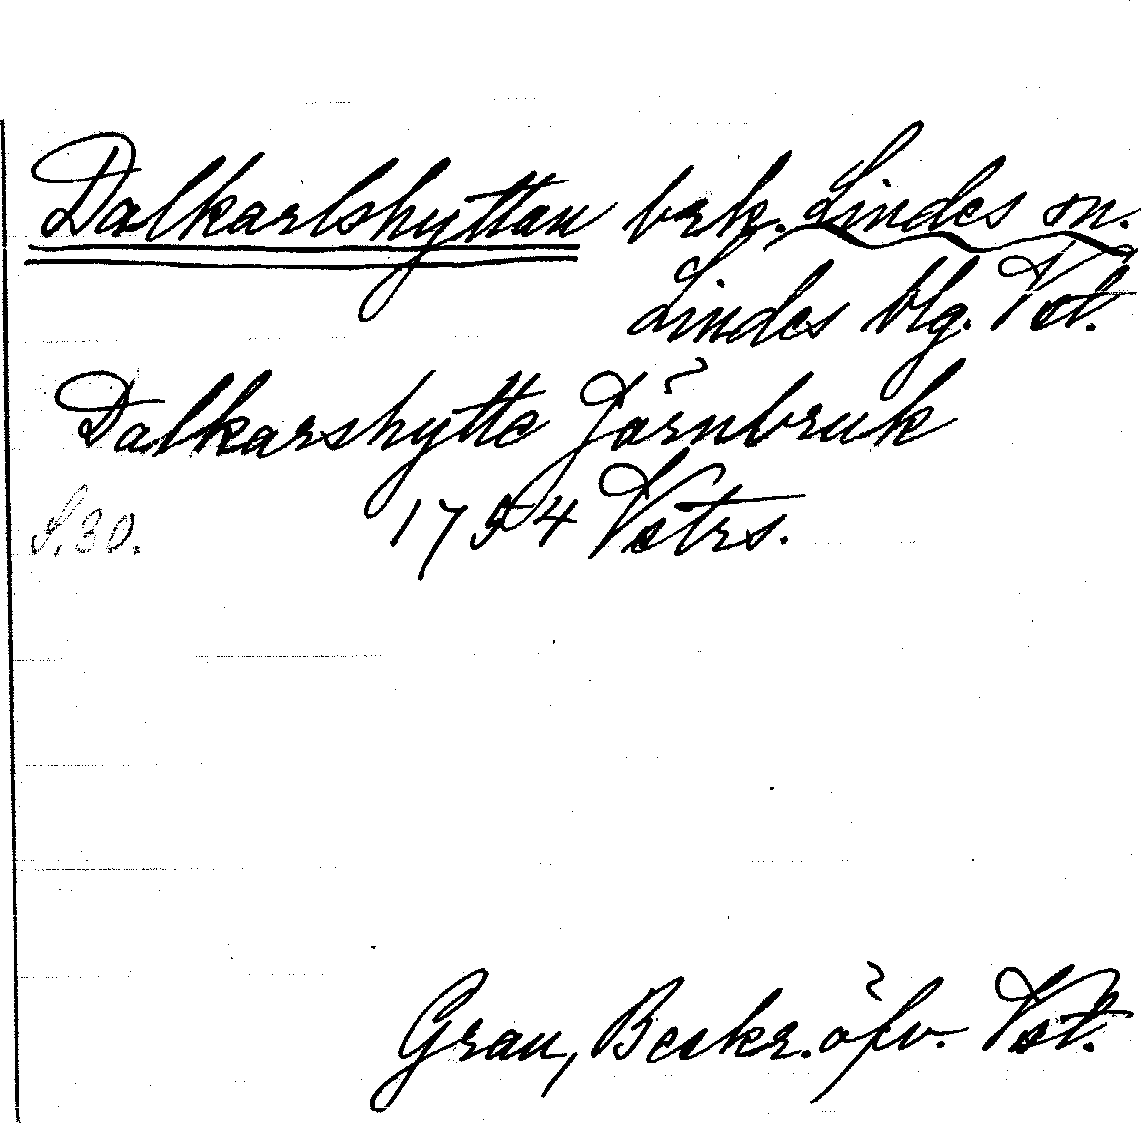 Dalkarlshyttan brk. Lindes sn.
Lindes blg. Vst.
Dalkarshytte Järnbruk
S. 30. 1754 Vstrs.
Grau, Beskr. öfv. Vst.